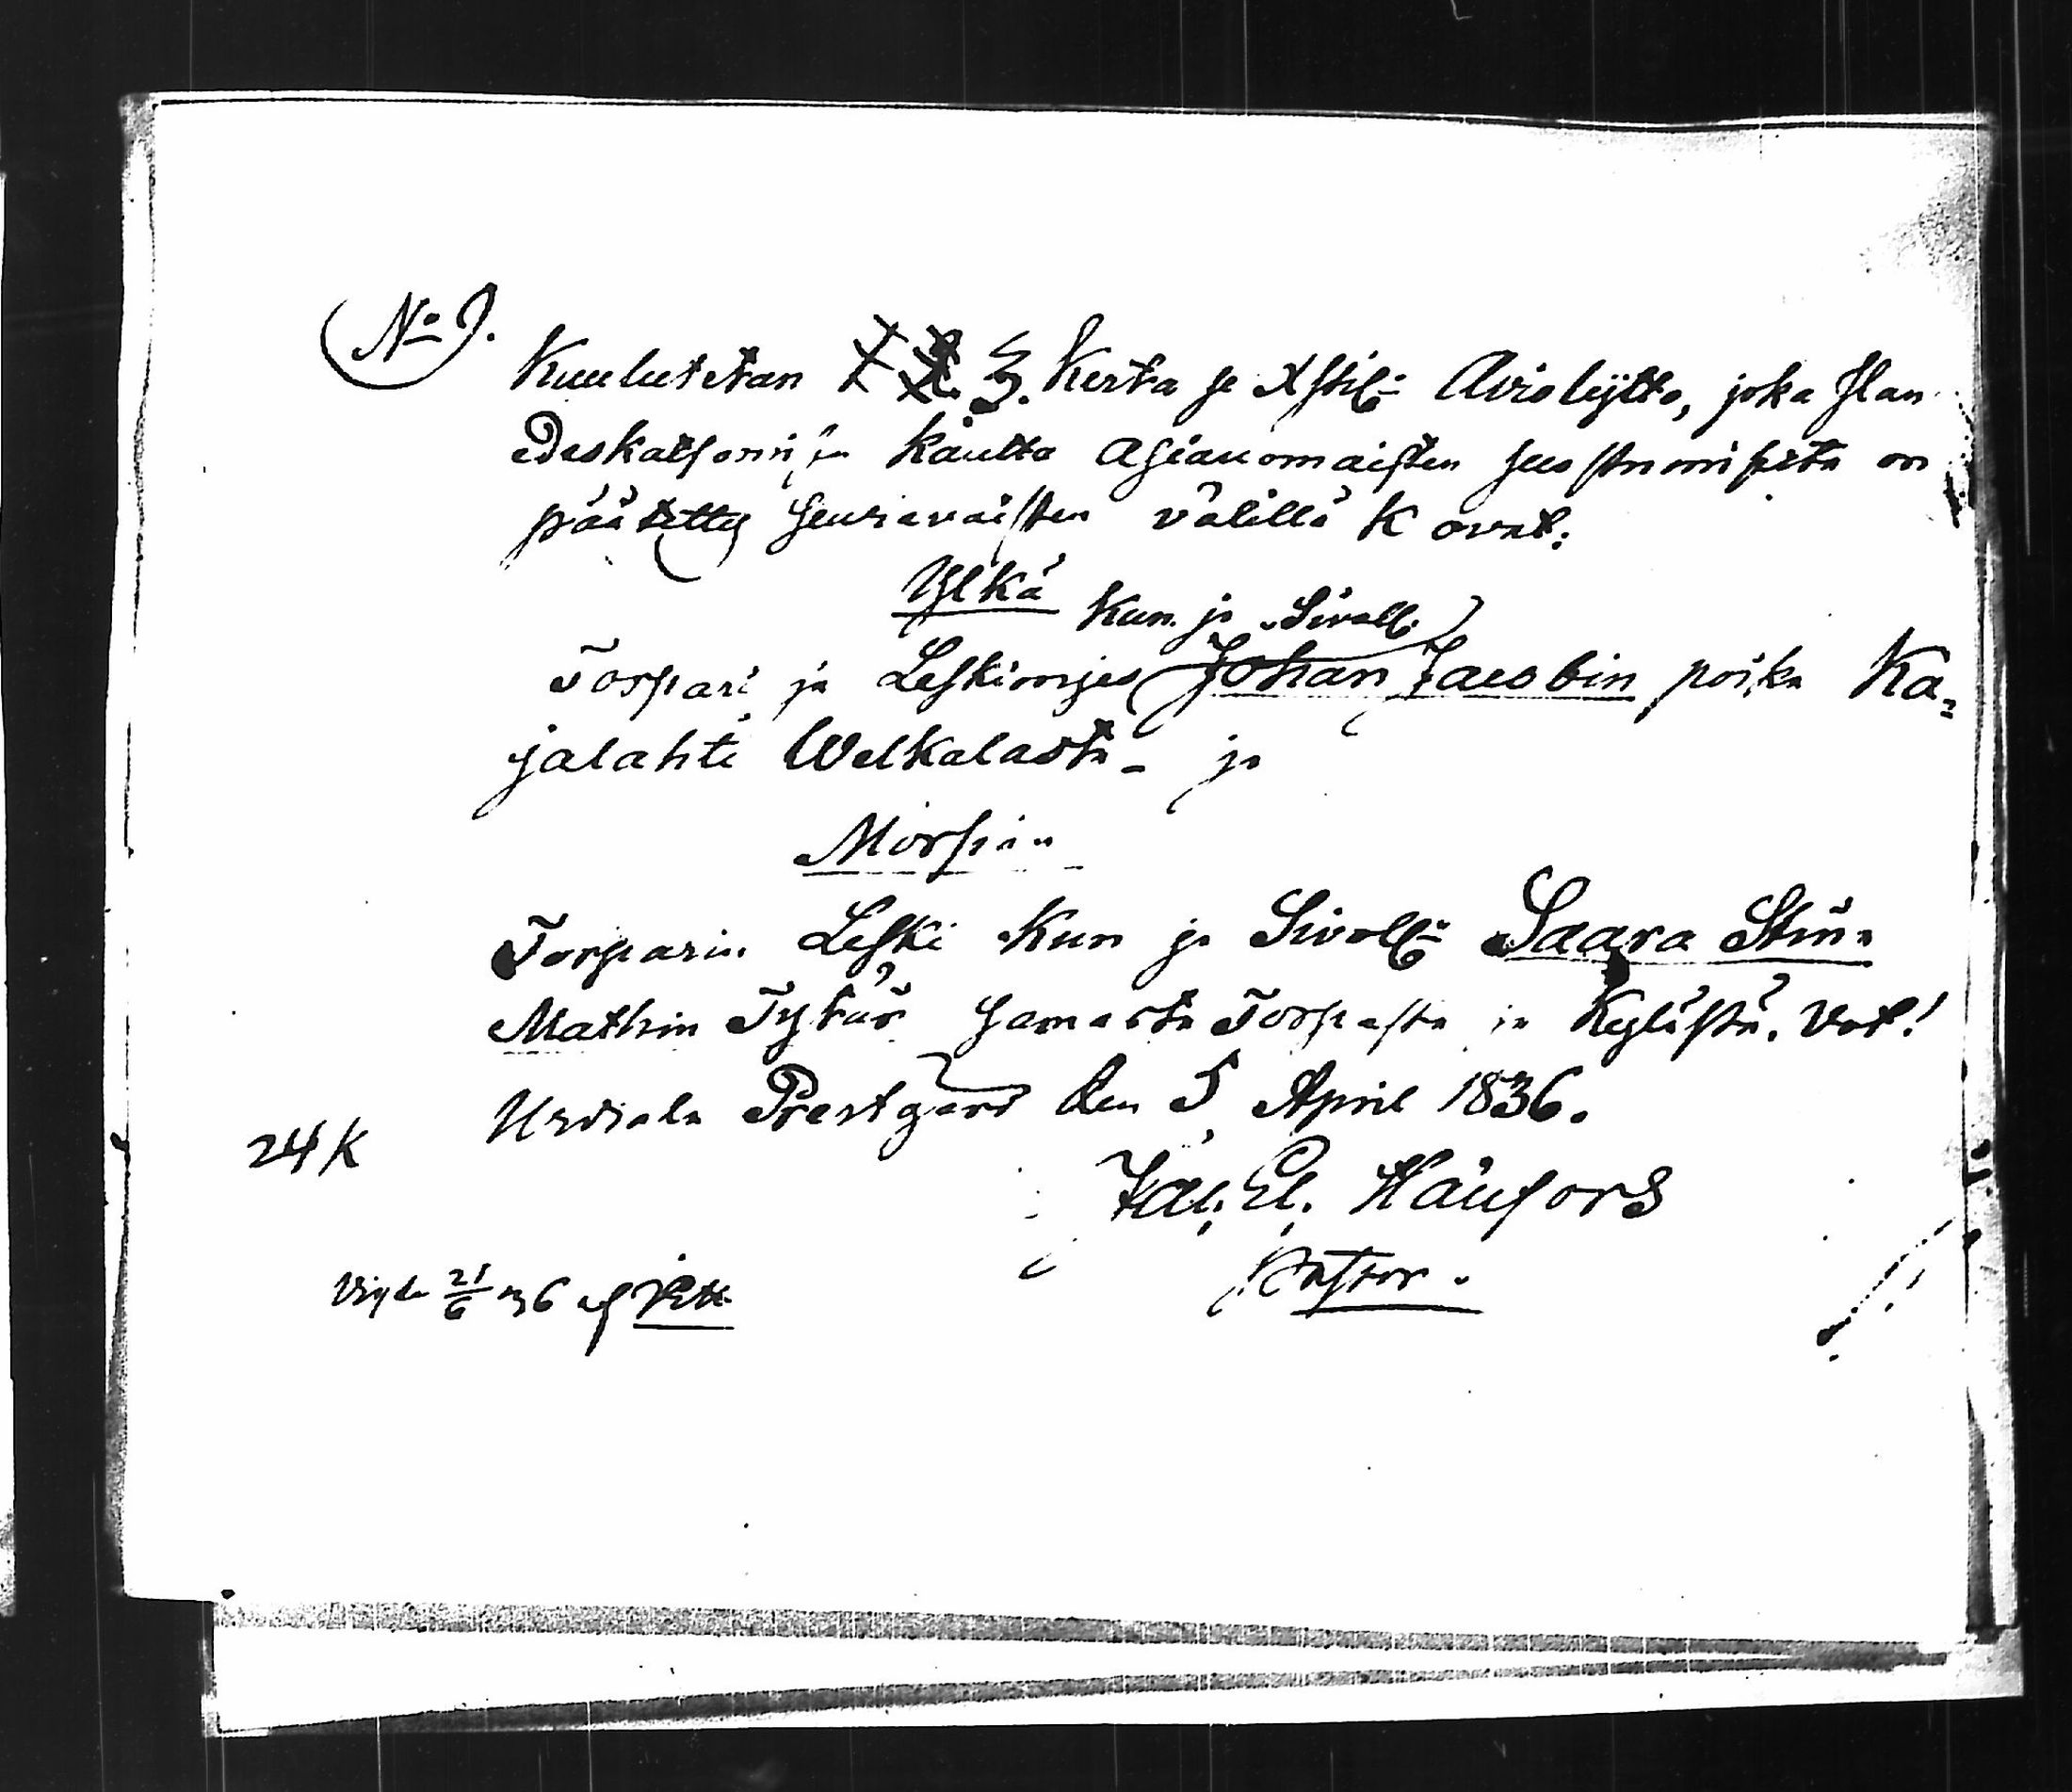 No 9.
Kuulutetan 1 2 3. Kerta se Xstil: Aviolijtto, joka Ilan
Edeskatsomisen kautta asianomaisten suostumisesta on
päätetty seuravaisten välillä K ovat:
Yljkä
Kun. ja Sivoll:
Torpari ja Leskimjes Johan Jacobin poika Ka=
jalahti Welkalasta - ja
Morsian
Torparin Leski Kun ja Sivoll: Saara Stina
Mathin Tytär samasta Torpasta ja Kylästä. Vot!
Urdiala Prestgård den 5 April 1836.
24 K
Jac. El.
Pastor.
Vigde 21/6 36 af